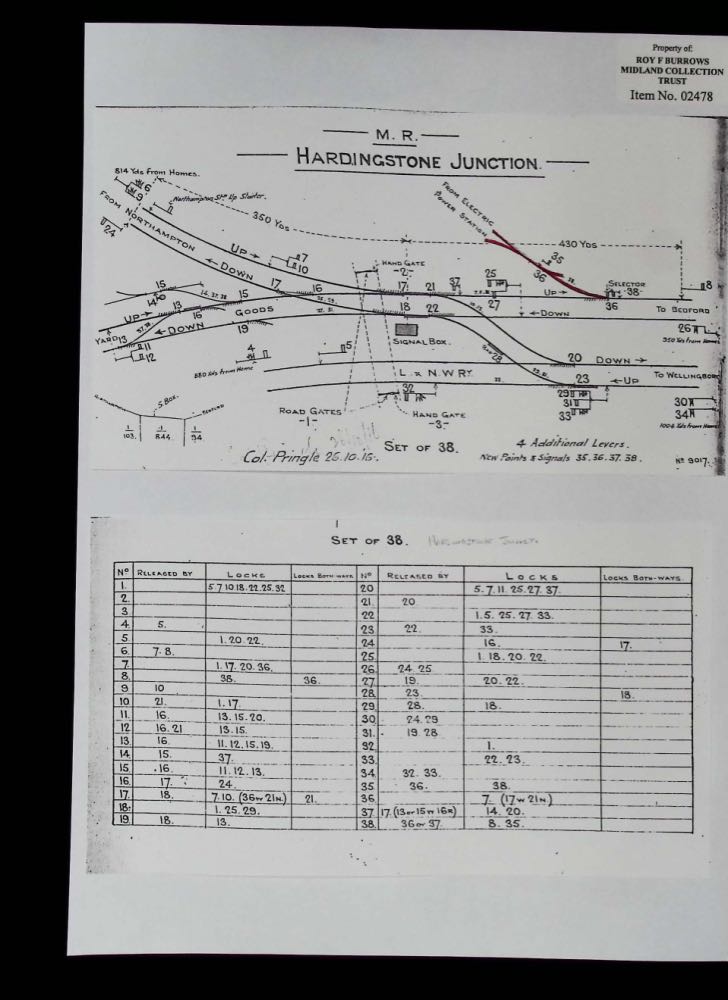 Property of:
ROY F BURROWS
MIDLAND COLLECTION
TRUST
Item No. 02478
M. R.
HARDINGSTONE JUNCTION.
814 Yds From Homes.
6
9
Northampton Stn Up Starter.
FROM NORTHAMPTON
24
350 YDS
FROM ELECTRIC
POWER STATION
430 YDS
UP
7
10
DOWN
HAND GATE
-2-
35
36
SELECTOR
38
8
15
14
16
15
17
16
17
21
37
25
27
UP
36
TO BEDFORD
UP
13
16
GOODS
18
22
DOWN
26
350 Yds from Home
DOWN
YARD 13
19
SIGNAL BOX.
11
12
4
5
880 Yds from Home
28
20
DOWN
L & N. W RY.
23
UP
TO WELLINGBORO
32
29
31
33
30
34
1004 Yds from Home
S. BOX.
1/103.
1/844
1/94
ROAD GATES
-1-
HAND GATE
-3-
Col. Pringle 25.10.15.
SET OF 38.
4 Additional Levers.
New Points & Signals 35. 36. 37. 38.
No 9017.
SET OF 38. Hardingstone Junct.
No RELEASED BY LOCKS LOCKS BOTH WAYS No RELEASED BY LOCKS LOCKS BOTH-WAYS.
1. 5.7.10.18.22.25.32 20 5. 7. 11. 25. 27. 37.
2. 21. 20
3. 22 1. 5. 25. 27. 33.
4. 5. 23 22. 33.
5. 1. 20. 22. 24 16. 17.
6. 7. 8. 25. 1. 18. 20. 22.
7. 1. 17. 20. 36. 26. 24. 25
8. 38. 36. 27. 19. 20. 22.
9 10 28. 23. 18.
10 21. 1. 17. 29. 28. 18.
11. 16. 13. 15. 20. 30. 24. 29
12 16. 21 13. 15. 31. 19 28
13. 16. 11. 12. 15. 19. 32. 1.
14 15. 37. 33. 22. 23.
15 16. 11. 12. 13. 34. 32. 33.
16. 17. 24. 35 36. 38.
17. 18. 7. 10. (36 w 21N.) 21. 36. 7. (17 w 21 N.)
18. 1. 25. 29. 37. 17. (13 or 15 w 16R) 14. 20.
19. 18. 13. 38. 36 or 37. 8. 35.